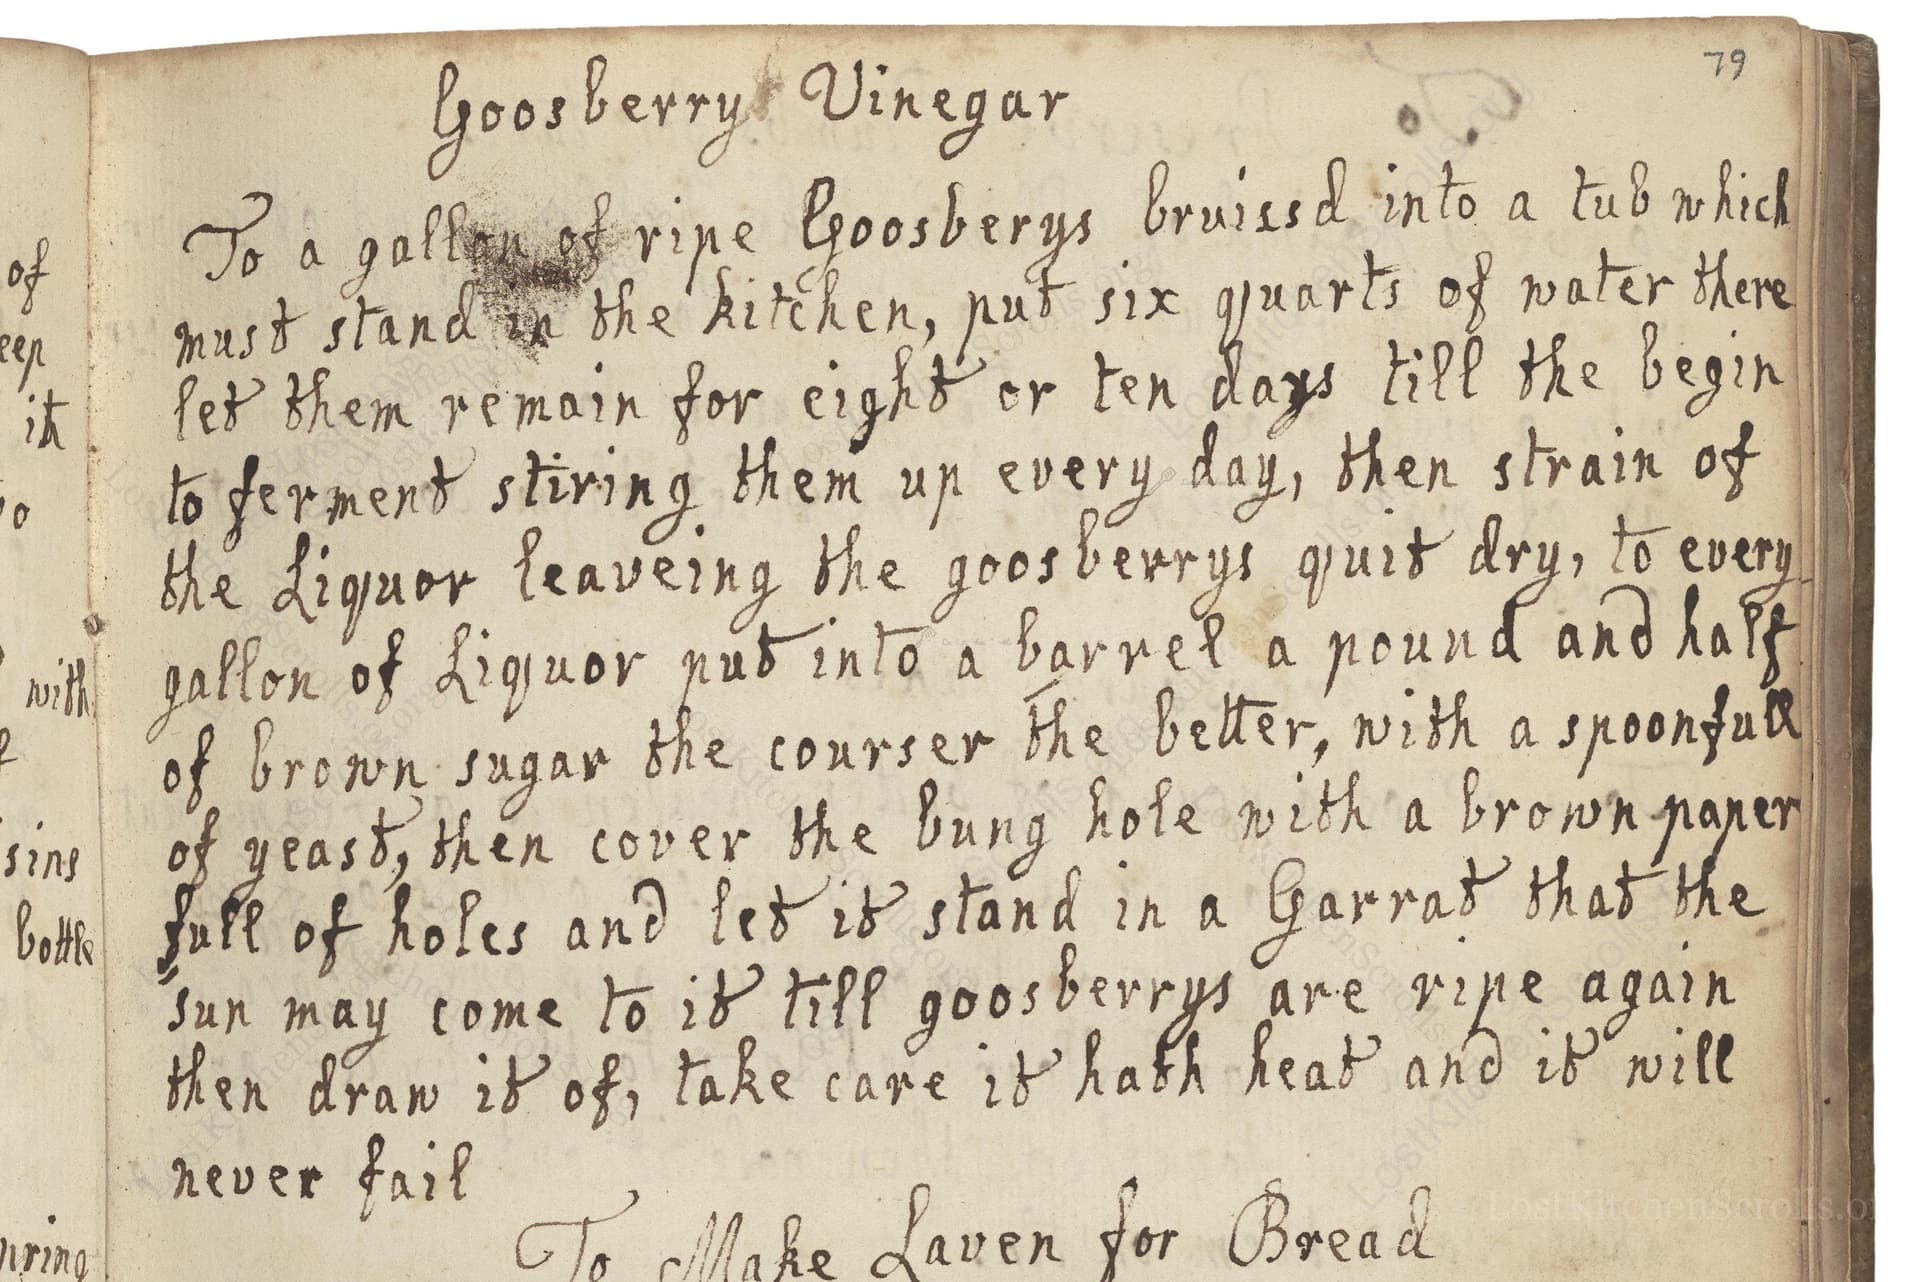 79
Goosberry Vinegar
To a gallon of ripe Goosberys bruissd into a tub which
must stand in the kitchen, put six quarts of water there
let them remain for eight or ten days till the begin
to ferment stiring them up every day, then strain of
the Liquor leaveing the goosberrys quit dry, to every
gallon of Liquor put into a barrel a pound and half
of brown sugar the courser the better, with a spoonfull
of yeast, then cover the bung hole with a brown paper
full of holes and let it stand in a Garrat that the
sun may come to it till goosberrys are ripe again
then draw it of, take care it hath heat and it will
never fail
To Make Laven for Bread
of
it
with
bottle
LostKitchenscrolls.o